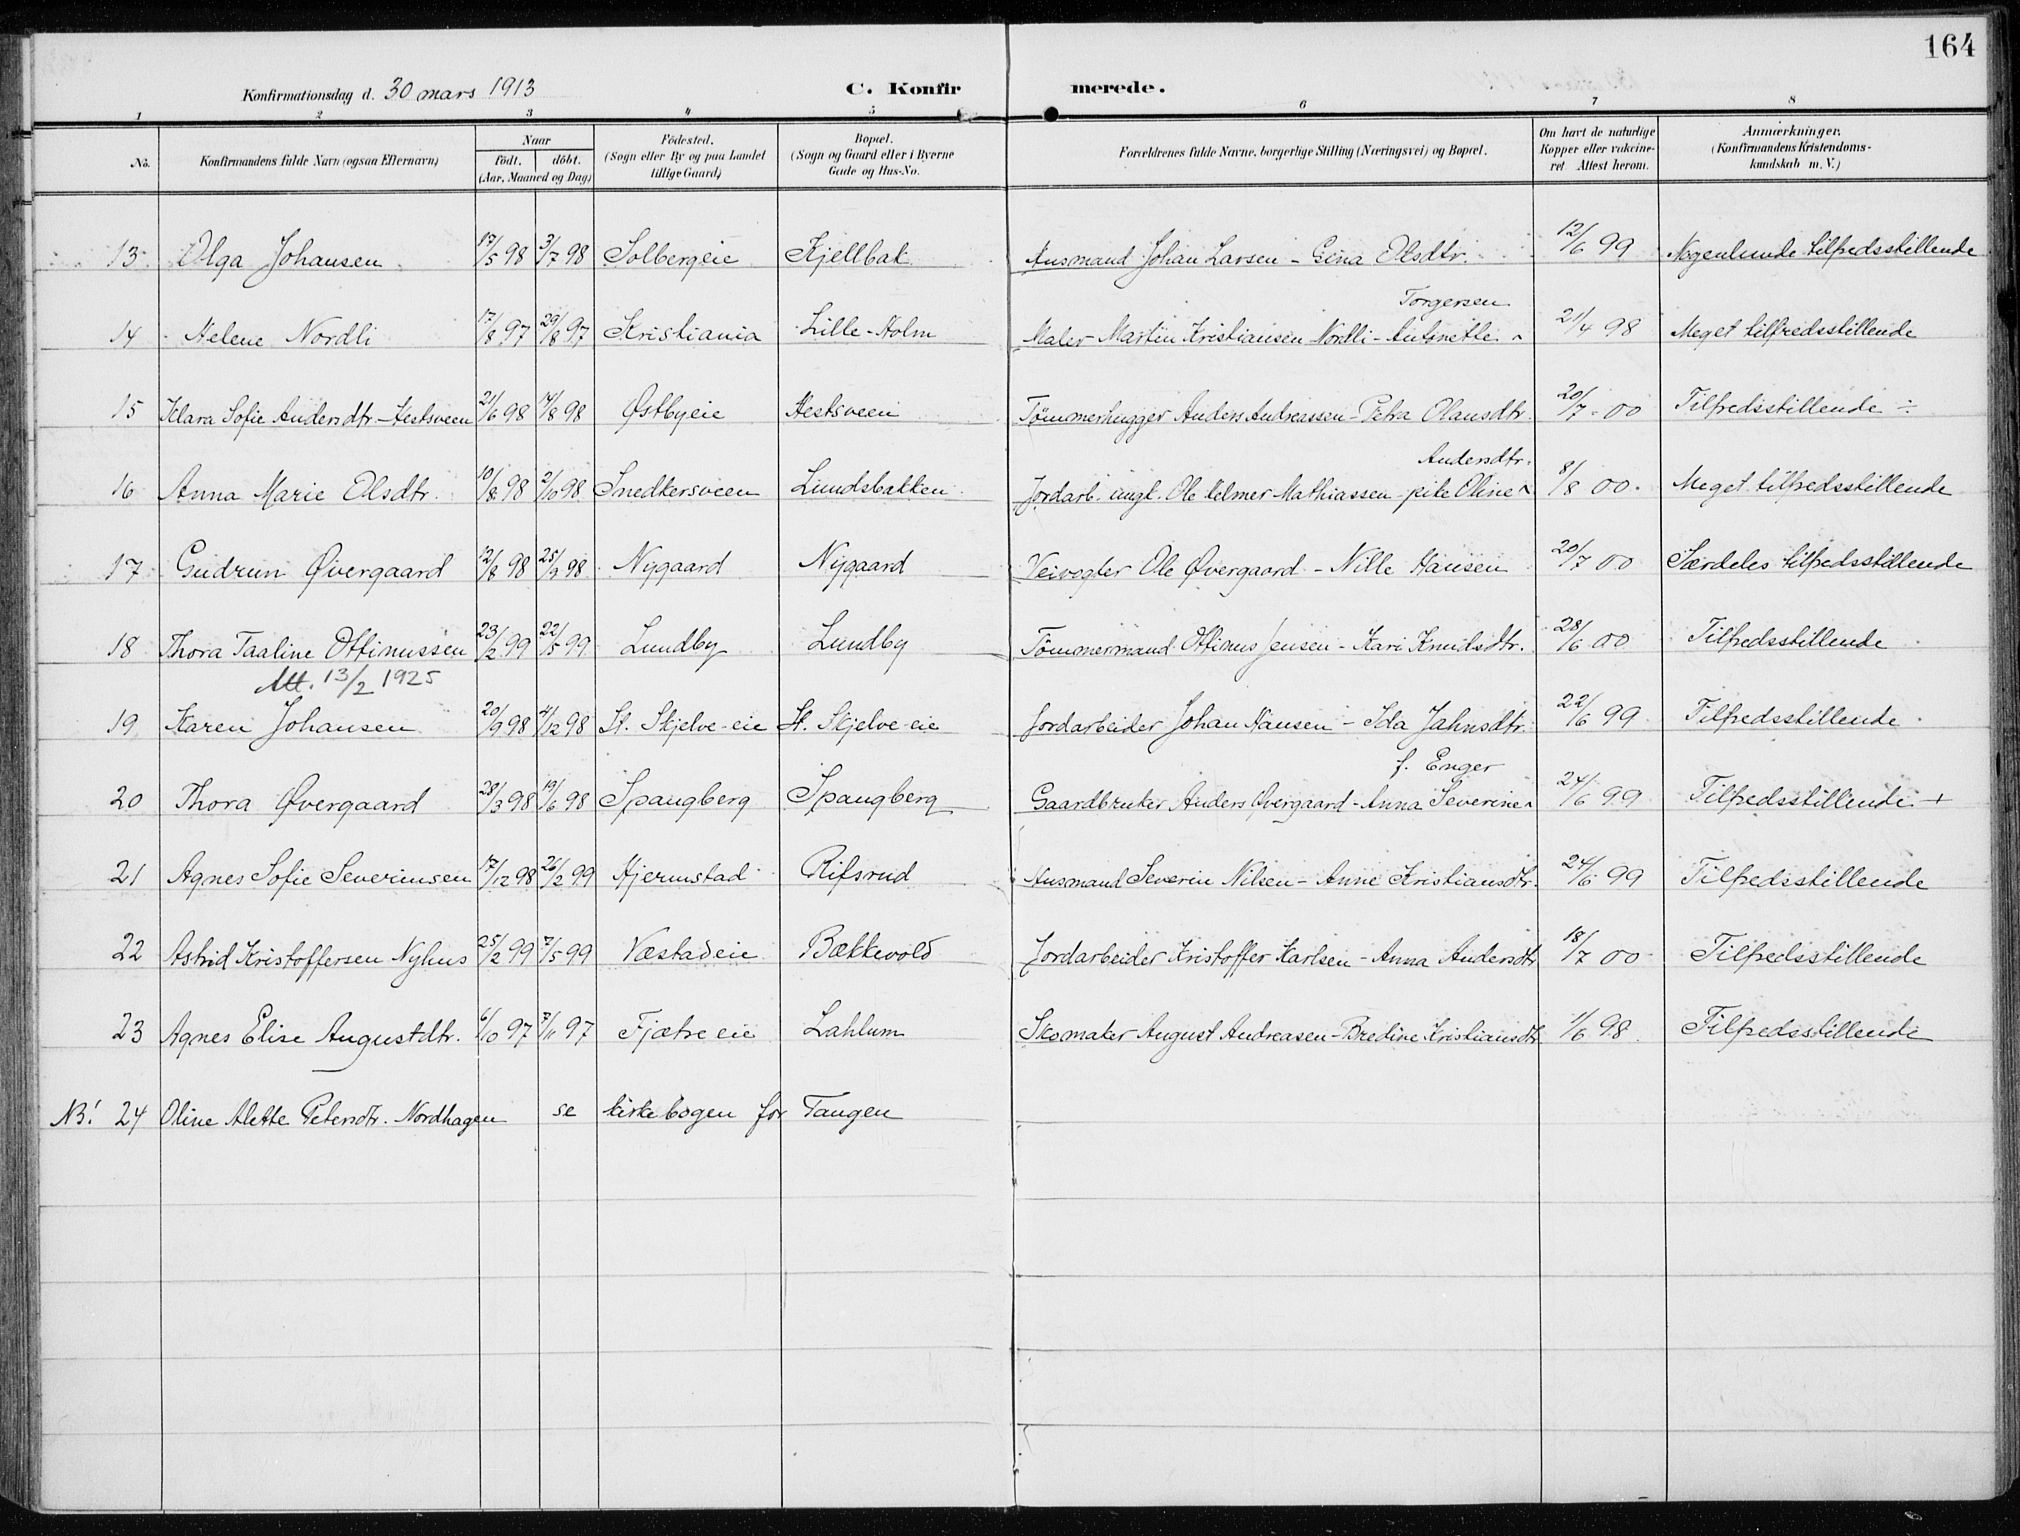 164
Konfirmationsdag d. 30 mars 1913 C. Konfirmerede.
1 2 3 4 5 6 7 8
No. Konfirmandens fulde Navn (ogsaa Efternavn) Naar født. døbt. (Aar, Maaned og Dag) Fødested. (Sogn eller By og paa Landet tillige Gaard) Bopæl. (Sogn og Gaard eller i Byerne Gade og Hus-No. Forældrenes fulde Navne, borgerlige Stilling (Næringsvei) og Bopæl. Om havt de naturlige Kopper eller vakcineret Attest herom. Anmærkninger. (Konfirmandens Kristendomskundskab m. V.)
13 Olga Johansen 17/5 98 3/7 98 Solbergeie Kjellbak Husmand Johan Larsen - Gina Olsdtr. 12/6 99 Nogenlunde tilfredsstillende
Torgersen
14 Helene Nordli 17/8 97 29/8 97 Kristiania Lille-Holm Maler Martin Kristiansen Nordli - Antonette ^ 21/4 98 Meget tilfredsstillende
15 Klara Sofie Andersdtr. Hestsveen 21/6 98 14/8 98 Østbyeie Hestsveen Tømmerhugger Anders Andreassen - Petra Olausdtr. 20/7 00 Tilfredsstillende ÷
Andersdtr.
16 Anna Marie Olsdtr. 10/8 98 2/10 98 Snedkersveen Lundsbakken Jordarb. ungk. Ole Helmer Mathiassen - pike Oline ^ 8/8 00. Meget tilfredsstillende
17 Gudrun Øvergaard 12/8 98 25/9 98 Nygaard Nygaard Veivogter Ole Øvergaard - Nille Hansen 20/7 00 Særdeles tilfredsstillende
18 Thora Taaline Ottinussen 23/2 99 22/5 99 Lundby Lundby Tømmermand Ottinus Jensen - Kari Knudsdtr. 28/6 00 Tilfredsstillende
Att. 13/2 1925
19 Karen Johansen 20/9 98 4/12 98 St. Skjelve-eie St. Skjelve-eie Jordarbeider Johan Hansen - Ida Jahnsdtr. 22/6 99 Tilfredsstillende
f. Enger
20 Thora Øvergaard 28/3 98 19/6 98 Spangberg Spangberg Gaardbruker Anders Øvergaard - Anna Severine ^ 24/6 99 Tilfredsstillende +
21 Agnes Sofie Severinsen 17/12 98 26/2 99 Hjermstad Rifsrud Husmand Severin Nilsen - Anne Kristiansdtr. 24/6 99 Tilfredsstillende
22 Astrid Kristoffersen Nyhus 25/2 99 7/5 99 Væstadeie Bækkevold Jordarbeider Kristoffer Karlsen - Anna Andersdtr 18/7 00 Tilfredsstillende
23 Agnes Elise Augustdtr. 6/10 97 7/11 97 Fjætre eie Lahlum Skomaker August Andreasen - Bredine Kristiansdtr 1/6 98. Tilfredsstillende
NB! 24 Oline Alette Petersdtr. Nordhagen se kirkebogen for Tangen